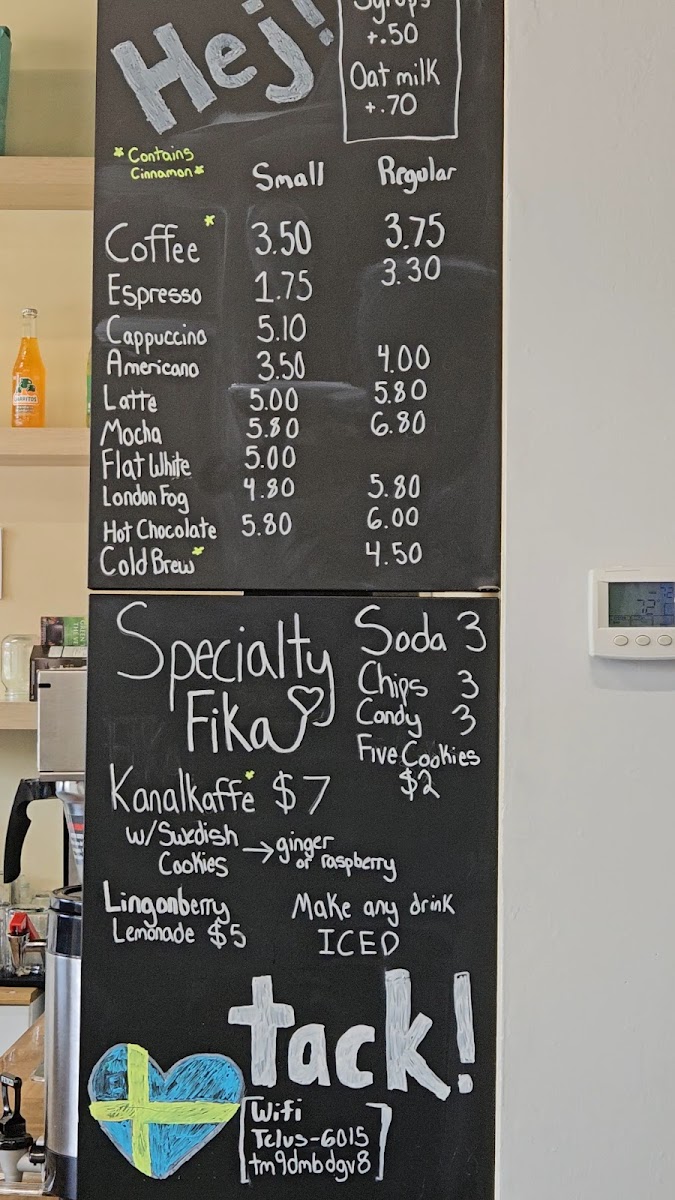 Hej!
Syrups
+.50
Oat milk
+.70
*Contains
Cinnamon*
Small Regular
Coffee* 3.50 3.75
Espresso 1.75 3.30
Cappuccino 5.10
Americano 3.50 4.00
Latte 5.00 5.80
Mocha 5.80 6.80
Flat White 5.00
London Fog 4.80 5.80
Hot Chocolate 5.80 6.00
Cold Brew* 4.50
Specialty
Fika
Soda 3
Chips 3
Candy 3
Five Cookies
$2
Kanalkaffe* $7
w/Swedish
Cookies → ginger
or raspberry
Lingonberry
Lemonade $5
Make any drink
ICED
tack!
Wifi
Telus-6015
tm9dmbdgv8
72